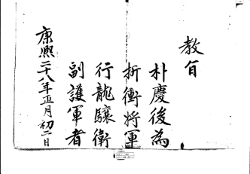 教旨
朴慶後為
折衝將軍
行龍驤衛
副護軍者
康熙二十八年正月初二日